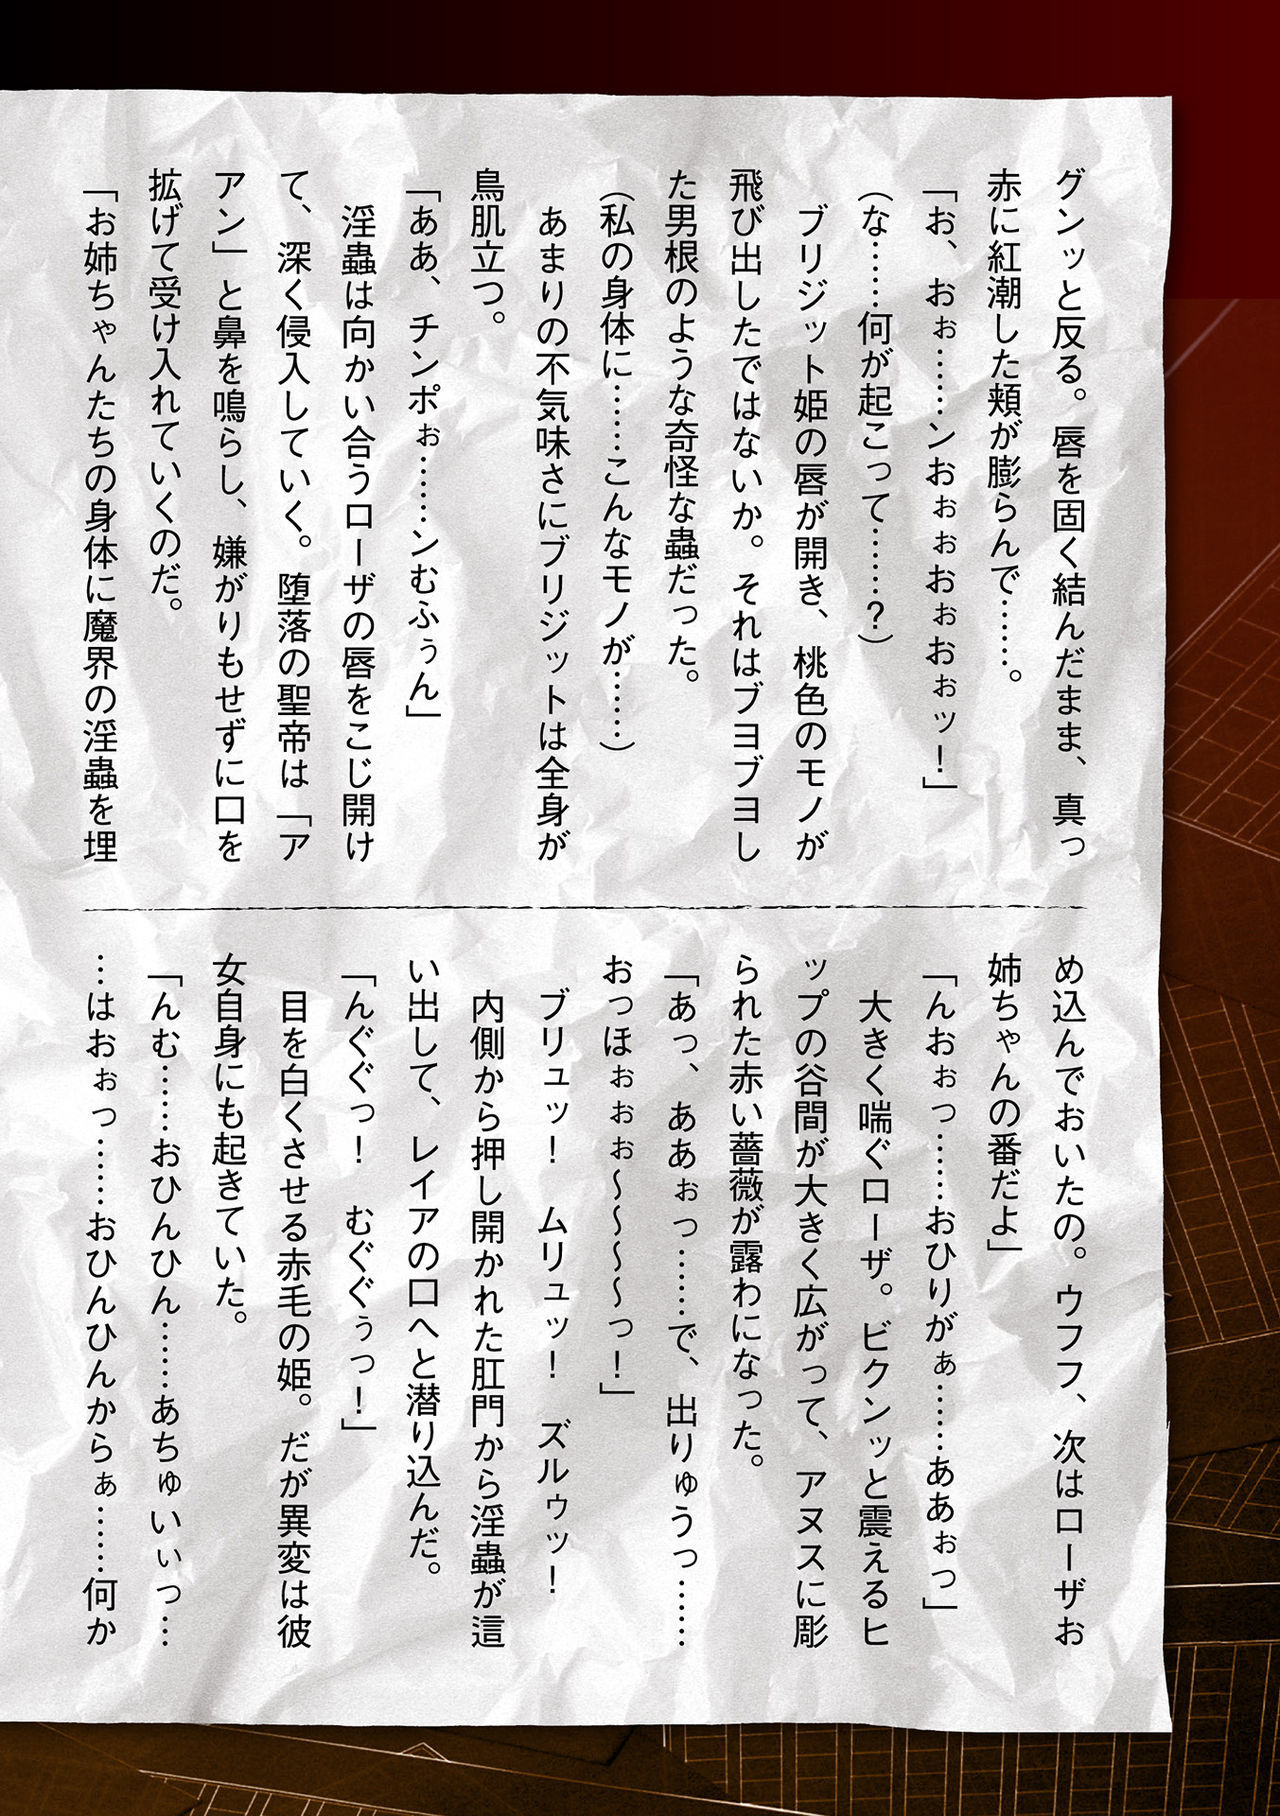 グンッと反る。唇を固く結んだまま、真っ
赤に紅潮した頬が膨らんで……。
「お、おぉ……ンおぉぉおぉおぉッ！」
（な……何が起こって……？）
　ブリジット姫の唇が開き、桃色のモノが
飛び出したではないか。それはブヨブヨし
た男根のような奇怪な蟲だった。
（私の身体に……こんなモノが……）
　あまりの不気味さにブリジットは全身が
鳥肌立つ。
「ああ、チンポぉ……ンむふぅん」
　淫蟲は向かい合うローザの唇をこじ開け
て、深く侵入していく。堕落の聖帝は「ア
アン」と鼻を鳴らし、嫌がりもせずに口を
拡げて受け入れていくのだ。
「お姉ちゃんたちの身体に魔界の淫蟲を埋
め込んでおいたの。ウフフ、次はローザお
姉ちゃんの番だよ」
「んおぉっ……おひりがぁ……ああぉっ」
　大きく喘ぐローザ。ビクンッと震えるヒ
ップの谷間が大きく広がって、アヌスに彫
られた赤い薔薇が露わになった。
「あっ、ああぉっ……で、出りゅうっ……
おっほぉぉぉ～～～～っ！」
　ブリュッ！　ムリュッ！　ズルゥッ！
　内側から押し開かれた肛門から淫蟲が這
い出して、レイアの口へと潜り込んだ。
「んぐぐっ！　むぐぐぅっ！」
　目を白くさせる赤毛の姫。だが異変は彼
女自身にも起きていた。
「んむ……おひんひん……あちゅいぃっ…
…はおぉっ……おひんひんからぁ……何か